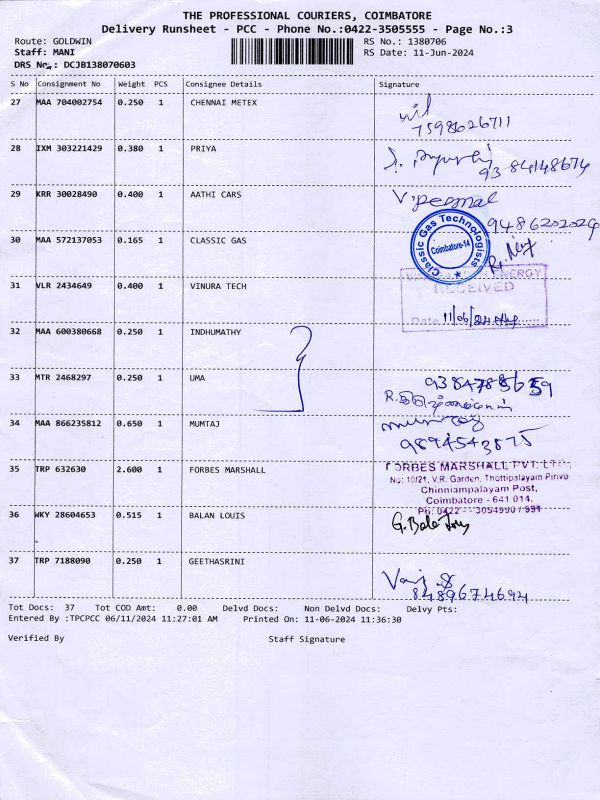 THE PROFESSIONAL COURIERS, COIMBATORE
Delivery Runsheet - PCC - Phone No.:0422-3505555 - Page No.:3
Route: GOLDWIN
RS No.: 1380706
Staff: MANI
RS Date: 11-Jun-2024
DRS No.: DCJB138070603
S No Consignment No Weight PCS Consignee Details Signature
27 MAA 704002754 0.250 1 CHENNAI METEX
7598626711
28 IXM 303221429 0.380 1 PRIYA
9384148674
29 KRR 30028490 0.400 1 AATHI CARS
V. Perumal
9486202026
30 MAA 572137053 0.165 1 CLASSIC GAS
Classic Gas Technologists
Coimbatore-14
31 VLR 2434649 0.400 1 VINURA TECH
ENERGY
RECEIVED
Date 11/06/24
32 MAA 600380668 0.250 1 INDHUMATHY
33 MTR 2468297 0.250 1 UMA
34 MAA 866235812 0.650 1 MUMTAJ
mumtaj
9894543875
35 TRP 632630 2.600 1 FORBES MARSHALL
FORBES MARSHALL PVT. LTD.,
No: 10/21, V.R. Garden, Thottipalayam Pirivu
Chinniampalayam Post,
Coimbatore - 641 014.
36 WKY 28604653 0.515 1 BALAN LOUIS
37 TRP 7188090 0.250 1 GEETHASRINI
8489674694
Tot Docs: 37 Tot COD Amt: 0.00 Delvd Docs: Non Delvd Docs: Delvy Pts:
Entered By :TPCPCC 06/11/2024 11:27:01 AM Printed On: 11-06-2024 11:36:30
Verified By Staff Signature